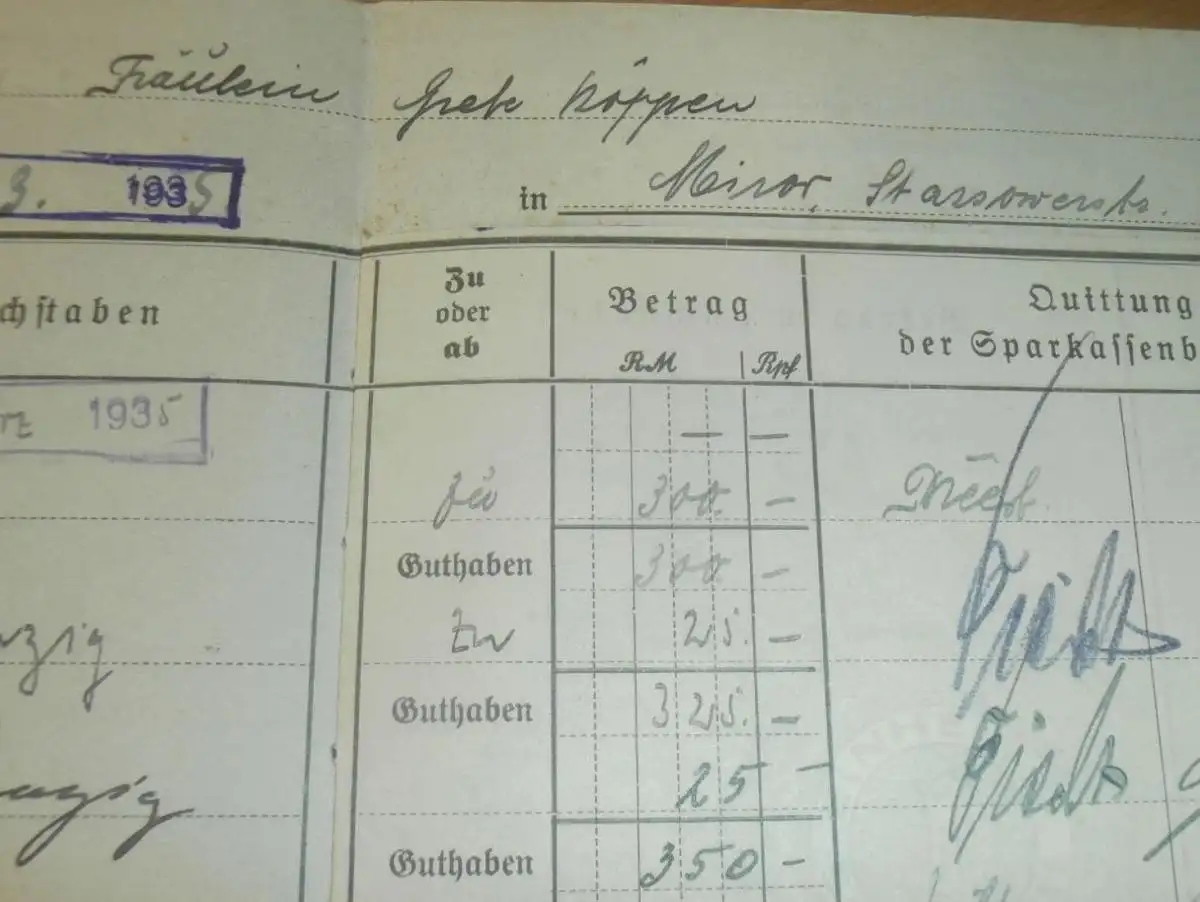 Fräulein Grete Köppen
3. 1935
in Mirow, Starsowerstr.
chstaben
Zu oder ab
Betrag
RM Rpf
Quittung der Sparkassenb
rz 1935
— —
zu 300. —
Guthaben 300 —
Zu 25. —
nzig
Guthaben 325. —
25 —
nzig
Guthaben 350 —